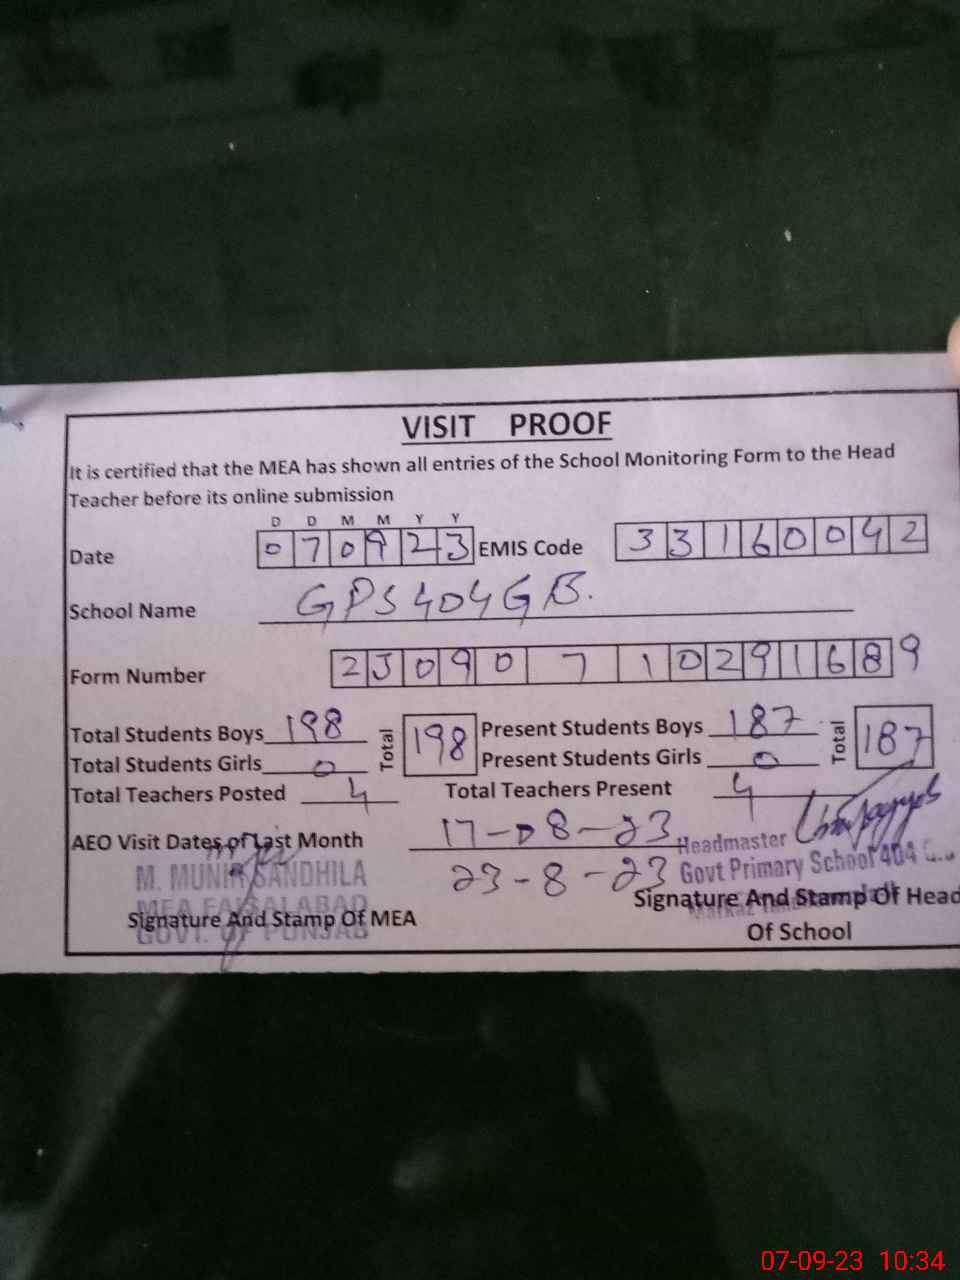 VISIT PROOF
It is certified that the MEA has shown all entries of the School Monitoring Form to the Head
Teacher before its online submission
D D M M Y Y
Date 070923 EMIS Code 33160042
School Name GPS 404 GB.
Form Number 2J090710291689
Total Students Boys 198 Total 198 Present Students Boys 187 Total 187
Total Students Girls 0 Present Students Girls 0
Total Teachers Posted 4 Total Teachers Present 4
AEO Visit Dates of Last Month 17-08-23
23-8-23
Headmaster
Govt Primary School 404
M. MUNIR SANDHILA
MEA FAISALABAD
GOVT. OF PUNJAB
Signature And Stamp Of MEA
Signature And Stamp Of Head
Of School
07-09-23 10:34